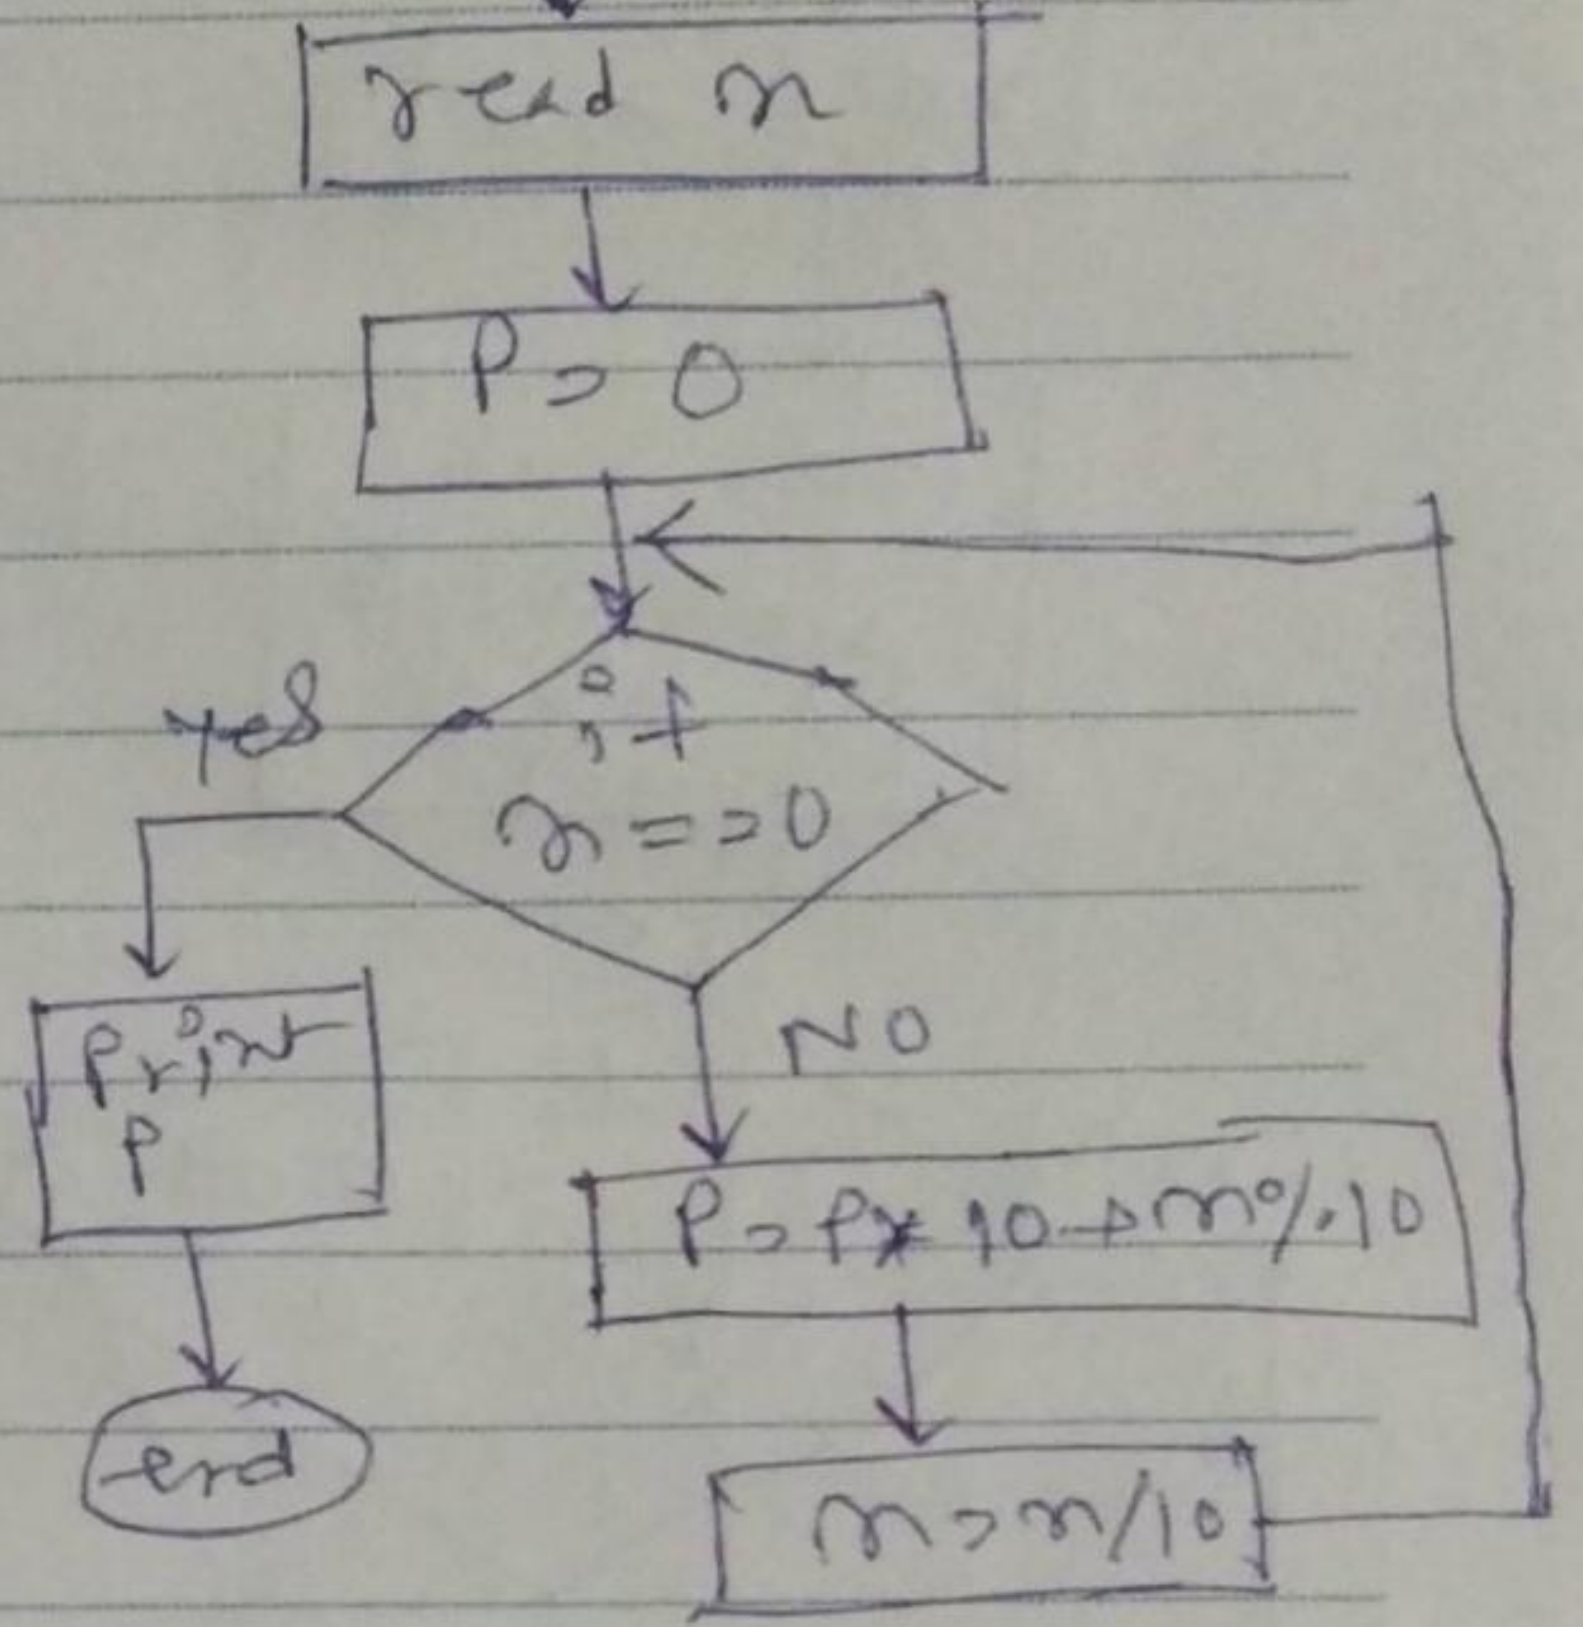 read n
P = 0
yes
if
n == 0
NO
Print
P
P = P * 10 + n % 10
n = n / 10
end